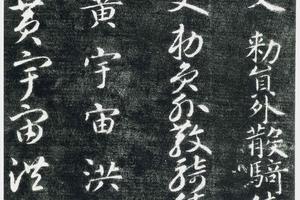 勅員外散騎
勅員外散騎
黃宇宙洪
黃宇宙洪